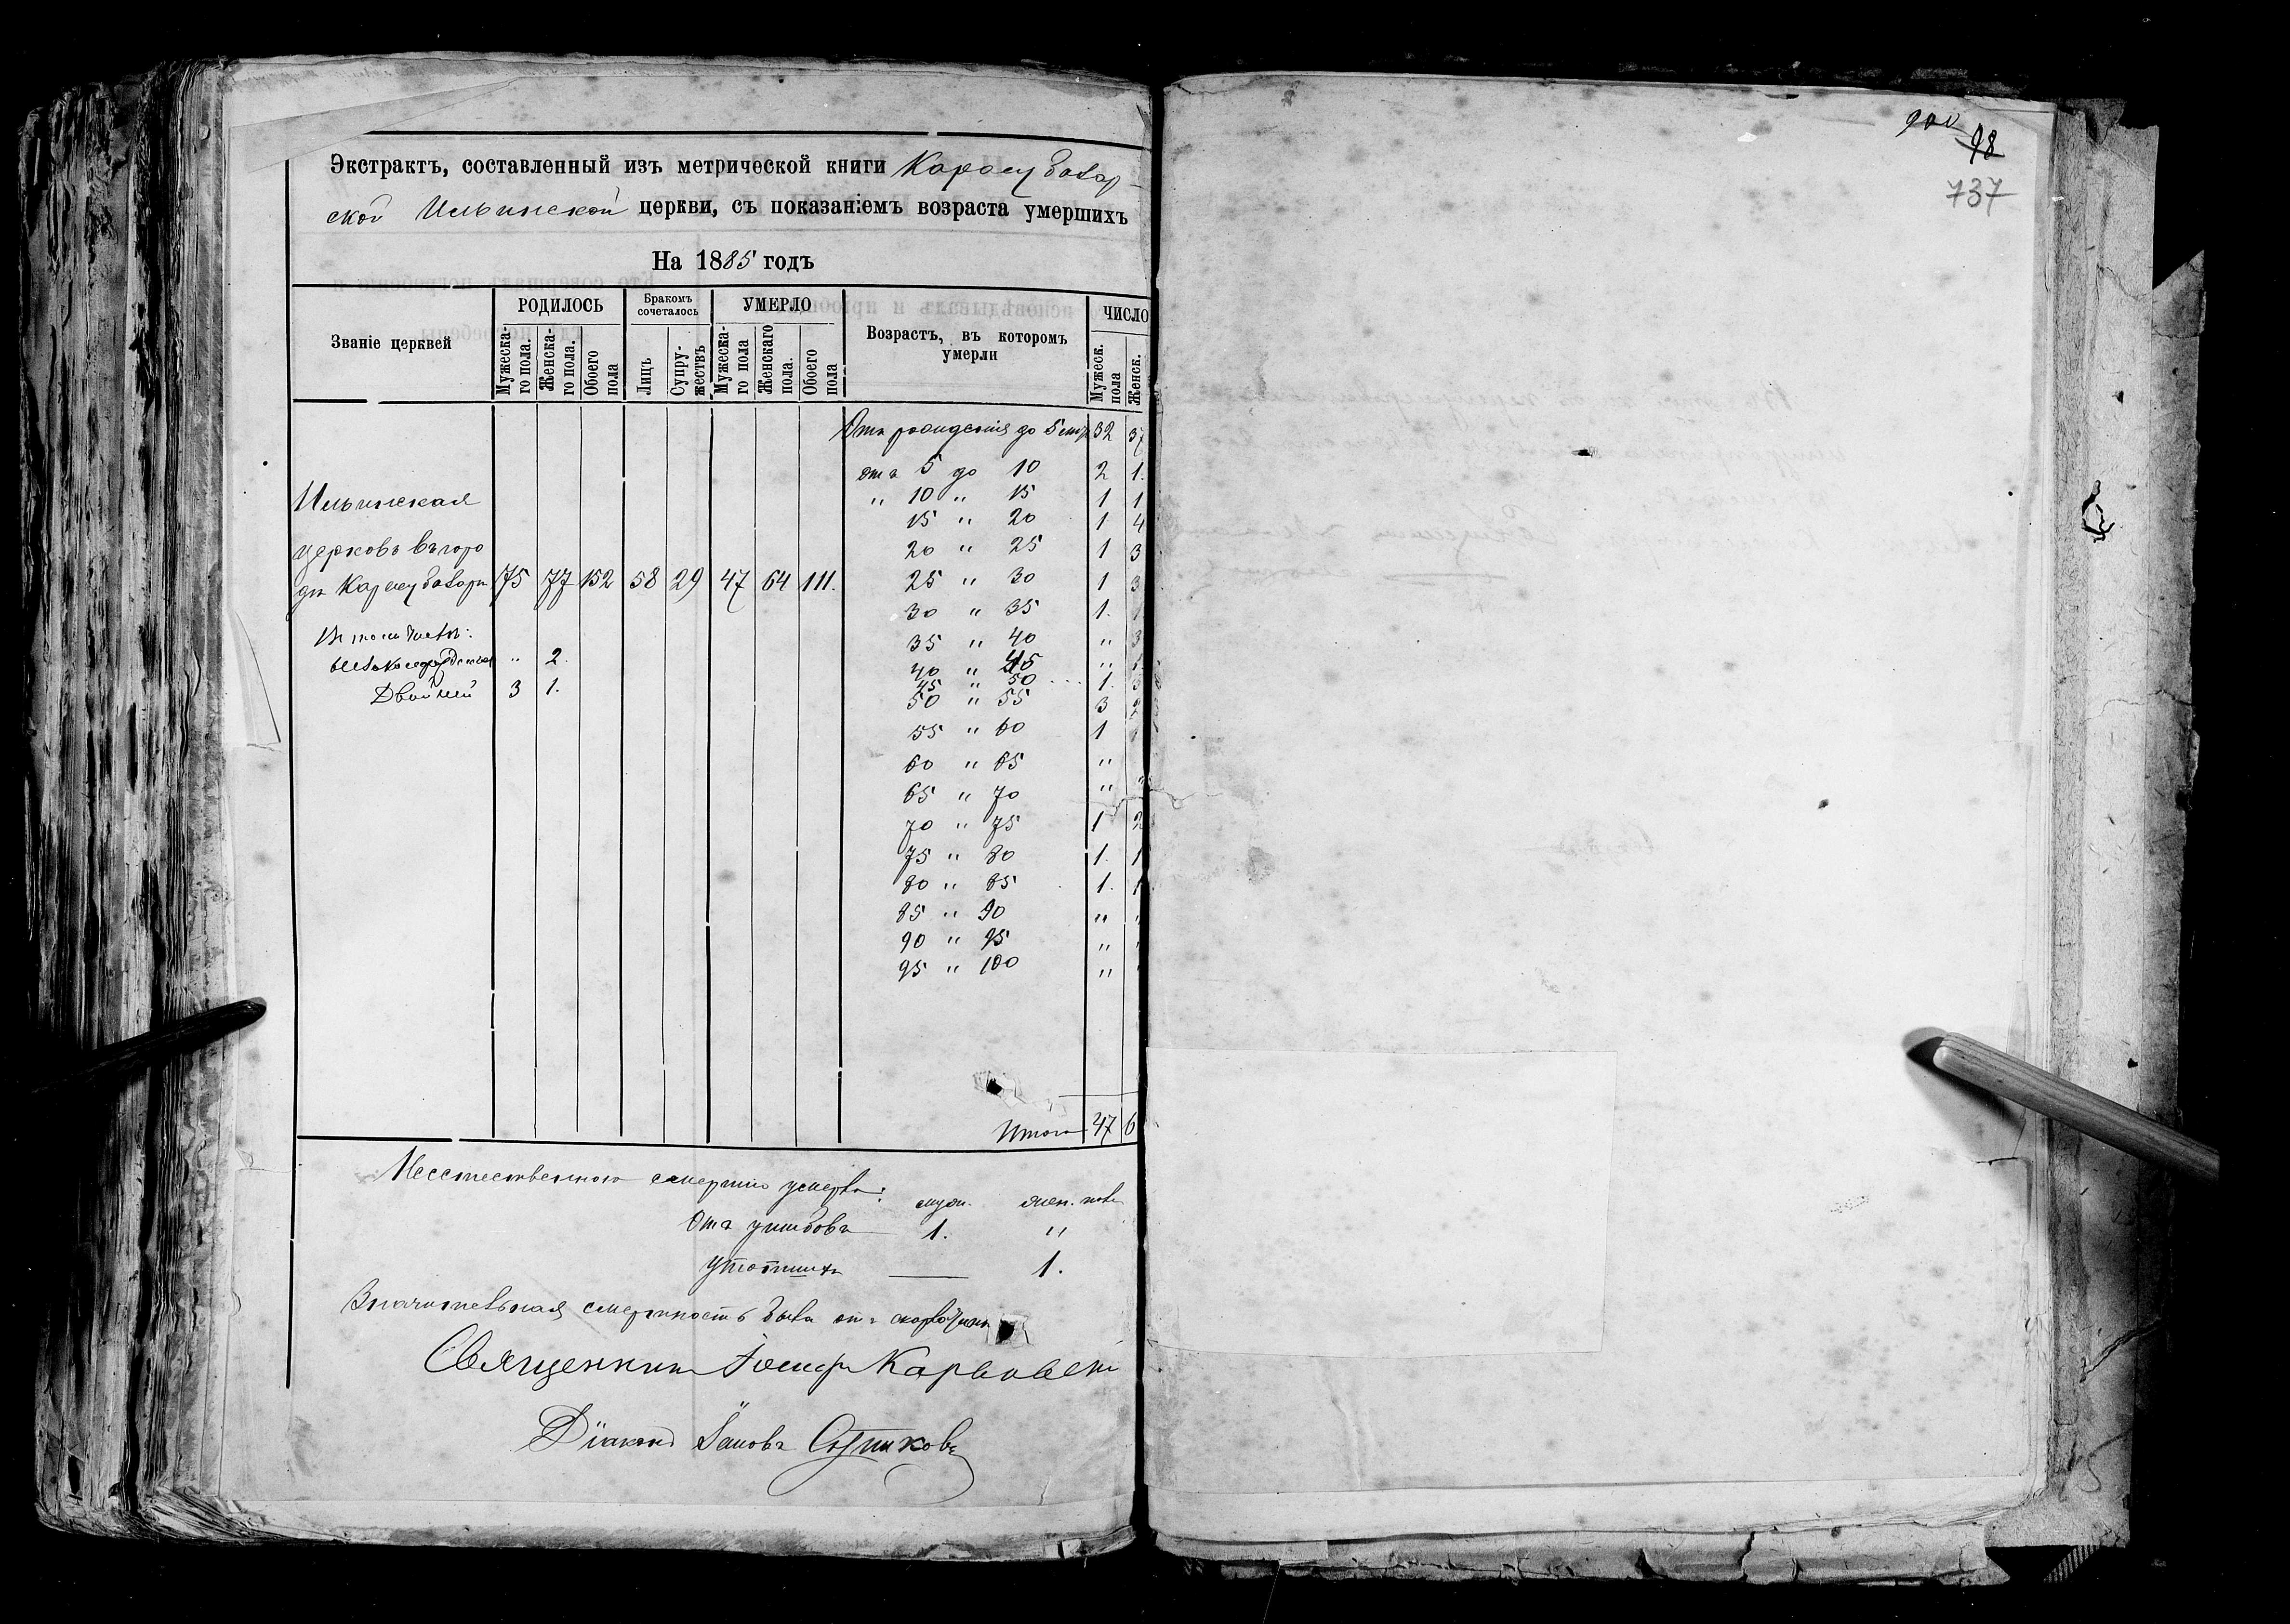 Экстрактъ, составленный изъ метрической книги Карасубазар-
ской Ильинской церкви, съ показаніемъ возраста умершихъ
На 1885 годъ
Званіе церквей
РОДИЛОСЬ
Мужеска-го пола.
Женска-го пола.
Обоего пола
Бракомъ сочеталось
Лицъ
Супру-жествъ
УМЕРЛО
Мужеска-го пола
Женскаго пола.
Обоего пола
Возрастъ, въ которомъ умерли
ЧИСЛО
Мужеск. пола
Женск.
Отъ рожденія до 5 32 37
отъ 5 до 10 2 1.
" 10 " 15 1 1
15 " 20 1 4
20 " 25 1 3
25 " 30 1 3
30 " 35 1. 1
35 " 40 " 3
40 " 45 "
45 " 50 1. 3
50 " 55 3 2
55 " 60 1 1
60 " 65 "
65 " 70 " "
70 " 75 1 2
75 " 80 1. 1
80 " 85 1. 1
85 " 90 " "
90 " 95 " "
95 " 100 "
Итого 47 6
Ильинская
церковь въ горо
дѣ Карасубазарѣ 75 77 152 58 29 47 64 111.
Въ томъ числѣ:
" 2.
Двойней 3 1.
Неестественною смертію умерло: муж. жен. пола
Отъ ушибовъ 1. "
утопшихъ — 1.
Значительная смертность была отъ скарлатины
Священникъ Іосифъ
Діаконъ Іаковъ
900
98
737